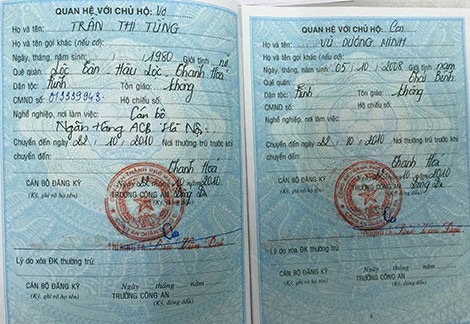 QUAN HỆ VỚI CHỦ HỘ: Vợ
Họ và tên: TRẦN THỊ TỪNG
Họ và tên gọi khác (nếu có):
Ngày, tháng, năm sinh: / / 1980 Giới tính: nữ
Quê quán: Lộc Tân - Hậu Lộc, Thanh Hoá
Dân tộc: Kinh Tôn giáo: không
CMND số: 013339943 Hộ chiếu số:
Nghề nghiệp, nơi làm việc: Cán bộ
Ngân hàng ACB Hà Nội.
Chuyển đến ngày 22 / 10 / 2010 Nơi thường trú trước khi
chuyển đến: Thanh Hoá
Ngày 22 tháng 10 năm 2010
CÁN BỘ ĐĂNG KÝ
(Ký, ghi rõ họ tên)
TRƯỞNG CÔNG AN
Lý do xóa ĐK thường trú:
Ngày tháng năm
CÁN BỘ ĐĂNG KÝ
(Ký, ghi rõ họ tên)
TRƯỞNG CÔNG AN
(Ký, đóng dấu)
QUAN HỆ VỚI CHỦ HỘ: Con
Họ và tên: VŨ DƯƠNG MINH
Họ và tên gọi khác (nếu có):
Ngày, tháng, năm sinh: 05 / 10 / 2008 Giới tính: nam
Quê quán: Thái Bình
Dân tộc: Kinh Tôn giáo: không
CMND số: Hộ chiếu số:
Nghề nghiệp, nơi làm việc:
Chuyển đến ngày 22 / 10 / 2010 Nơi thường trú trước khi
chuyển đến: Thanh Hoá
2010
CÁN BỘ ĐĂNG KÝ
(Ký, ghi rõ họ tên)
TRƯỞNG CÔNG AN
Lý do xóa ĐK thường trú:
Ngày tháng năm
CÁN BỘ ĐĂNG KÝ
(Ký, ghi rõ họ tên)
TRƯỞNG CÔNG AN
(Ký, đóng dấu)